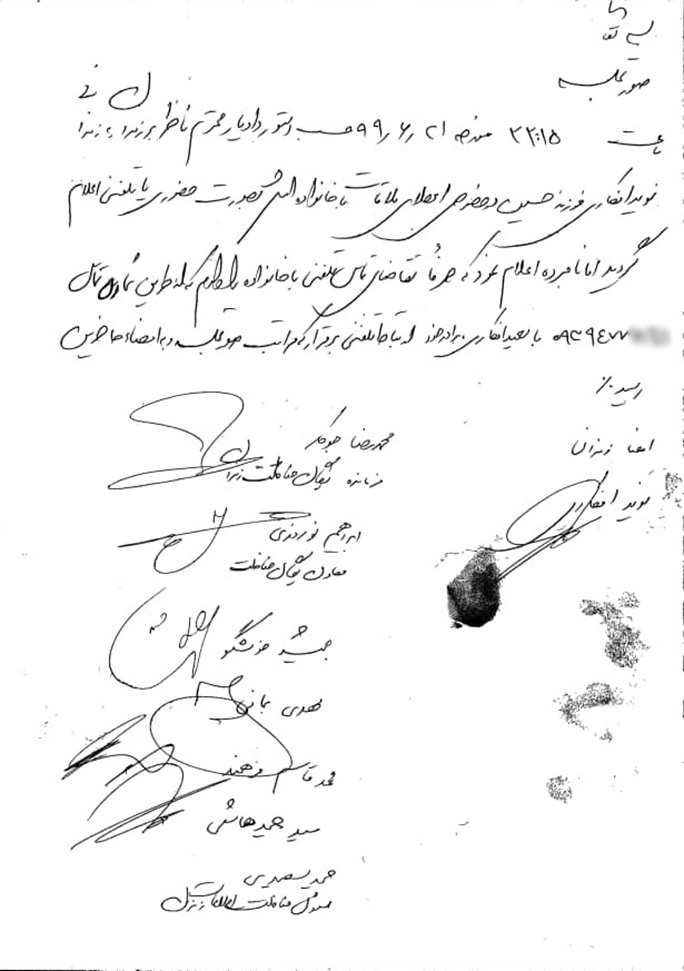 بسمه تعالی
صورتجلسه
ساعت ۲۲:۱۵ مورخه ۹۹٫۶٫۲۱ حسب دستور دادیار محترم ناظر بر زندان به زندانی
نوید افکاری فرزند حسین درخصوص اعطای ملاقات با خانواده اش بصورت حضوری یا تلفنی اعلام
گردید اما نامبرده اعلام نمود که صرفاً تقاضای تماس تلفنی با خانواده را دارم که از طریق شماره تماس
۰۹۳۹۴۷۷ با سعید افکاری برادر خود ارتباط تلفنی برقرار کرد مراتب صورتجلسه و به امضاء حاضرین
رسید٪
امضا زندانی
نوید افکاری
محمدرضا جوکار
فرمانده یگان حفاظت زندان
ابراهیم نوروزی
معاون یگان حفاظت
جمشید خوشگو
مهدی
محمد قاسم
سید حمید هاشمی
مسئول حفاظت اطلاعات زندان